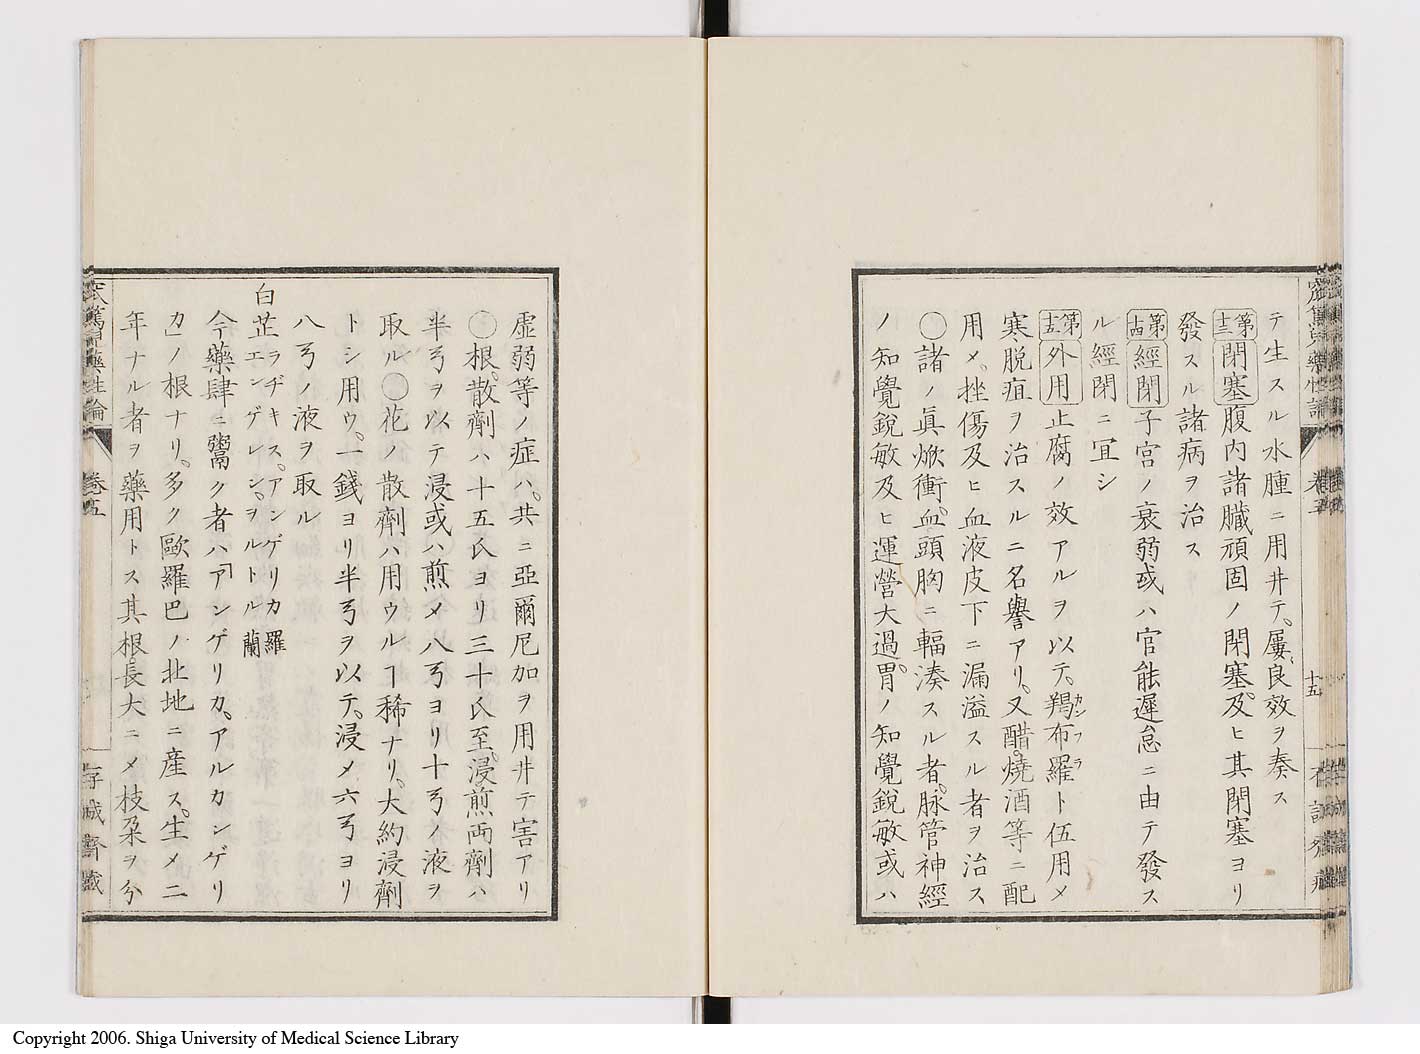 テ生スル水腫ニ用井テ。屢良效ヲ奏ス
第十三 閉塞 腹內諸臟頑固ノ閉塞。及ヒ其閉塞ヨリ
發スル諸病ヲ治ス
第十四 經閉 子宮ノ衰弱或ハ官能遲怠ニ由テ發ス
ル經閉ニ冝シ
第十五 外用 止腐ノ效アルヲ以テ。羯布羅ト伍用メ
カンフラ
寒脱疽ヲ治スルニ名譽アリ。又醋。燒酒等ニ配
用メ。挫傷及ヒ血液皮下ニ漏溢スル者ヲ治ス
〇諸ノ眞焮衝。血頭胸ニ輻湊スル者。脉管神經
ノ知覺銳敏及ヒ運營大過。胃ノ知覺銳敏或ハ
卷五
十五
虛弱等ノ症ハ。共ニ亞爾尼加ヲ用井テ害アリ
〇根。散劑ハ十五氏ヨリ三十氏至。浸煎両劑ハ
半弓ヲ以テ浸或ハ煎メ八弓ヨリ十弓ノ液ヲ
取ル〇花ノ散劑ハ用ウルヿ稀ナリ。大約浸劑
トシ用ウ。一錢ヨリ半弓ヲ以テ。浸メ六弓ヨリ
八弓ノ液ヲ取ル
白芷 ラヂキス。アンゲリカ 羅
エンゲレン。ヲルトル 蘭
今藥肆ニ鬻ク者ハ「アンゲリカ。アルカンゲリ
カ」ノ根ナリ。多ク歐羅巴ノ北地ニ産ス。生メ二
年ナル者ヲ藥用トス其根。長大ニメ枝朶ヲ分
篤兒藥性論
卷五
存誠齋藏